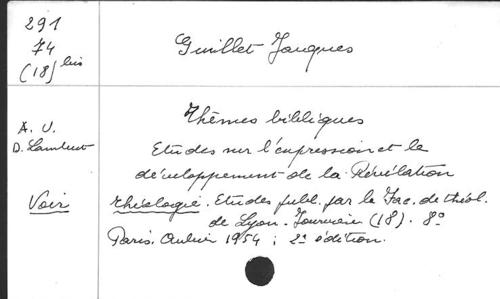 291
74
(18) bis
Guillet Jacques
A. U.
D. Lambert
Thèmes bibliques
Etudes sur l'expression et le
développement de la Révélation
Voir
théologie. Etudes publ. par la Fac. de théol.
de Lyon-Fourvière (18). 8°
Paris. Aubier 1954 ; 2e édition.